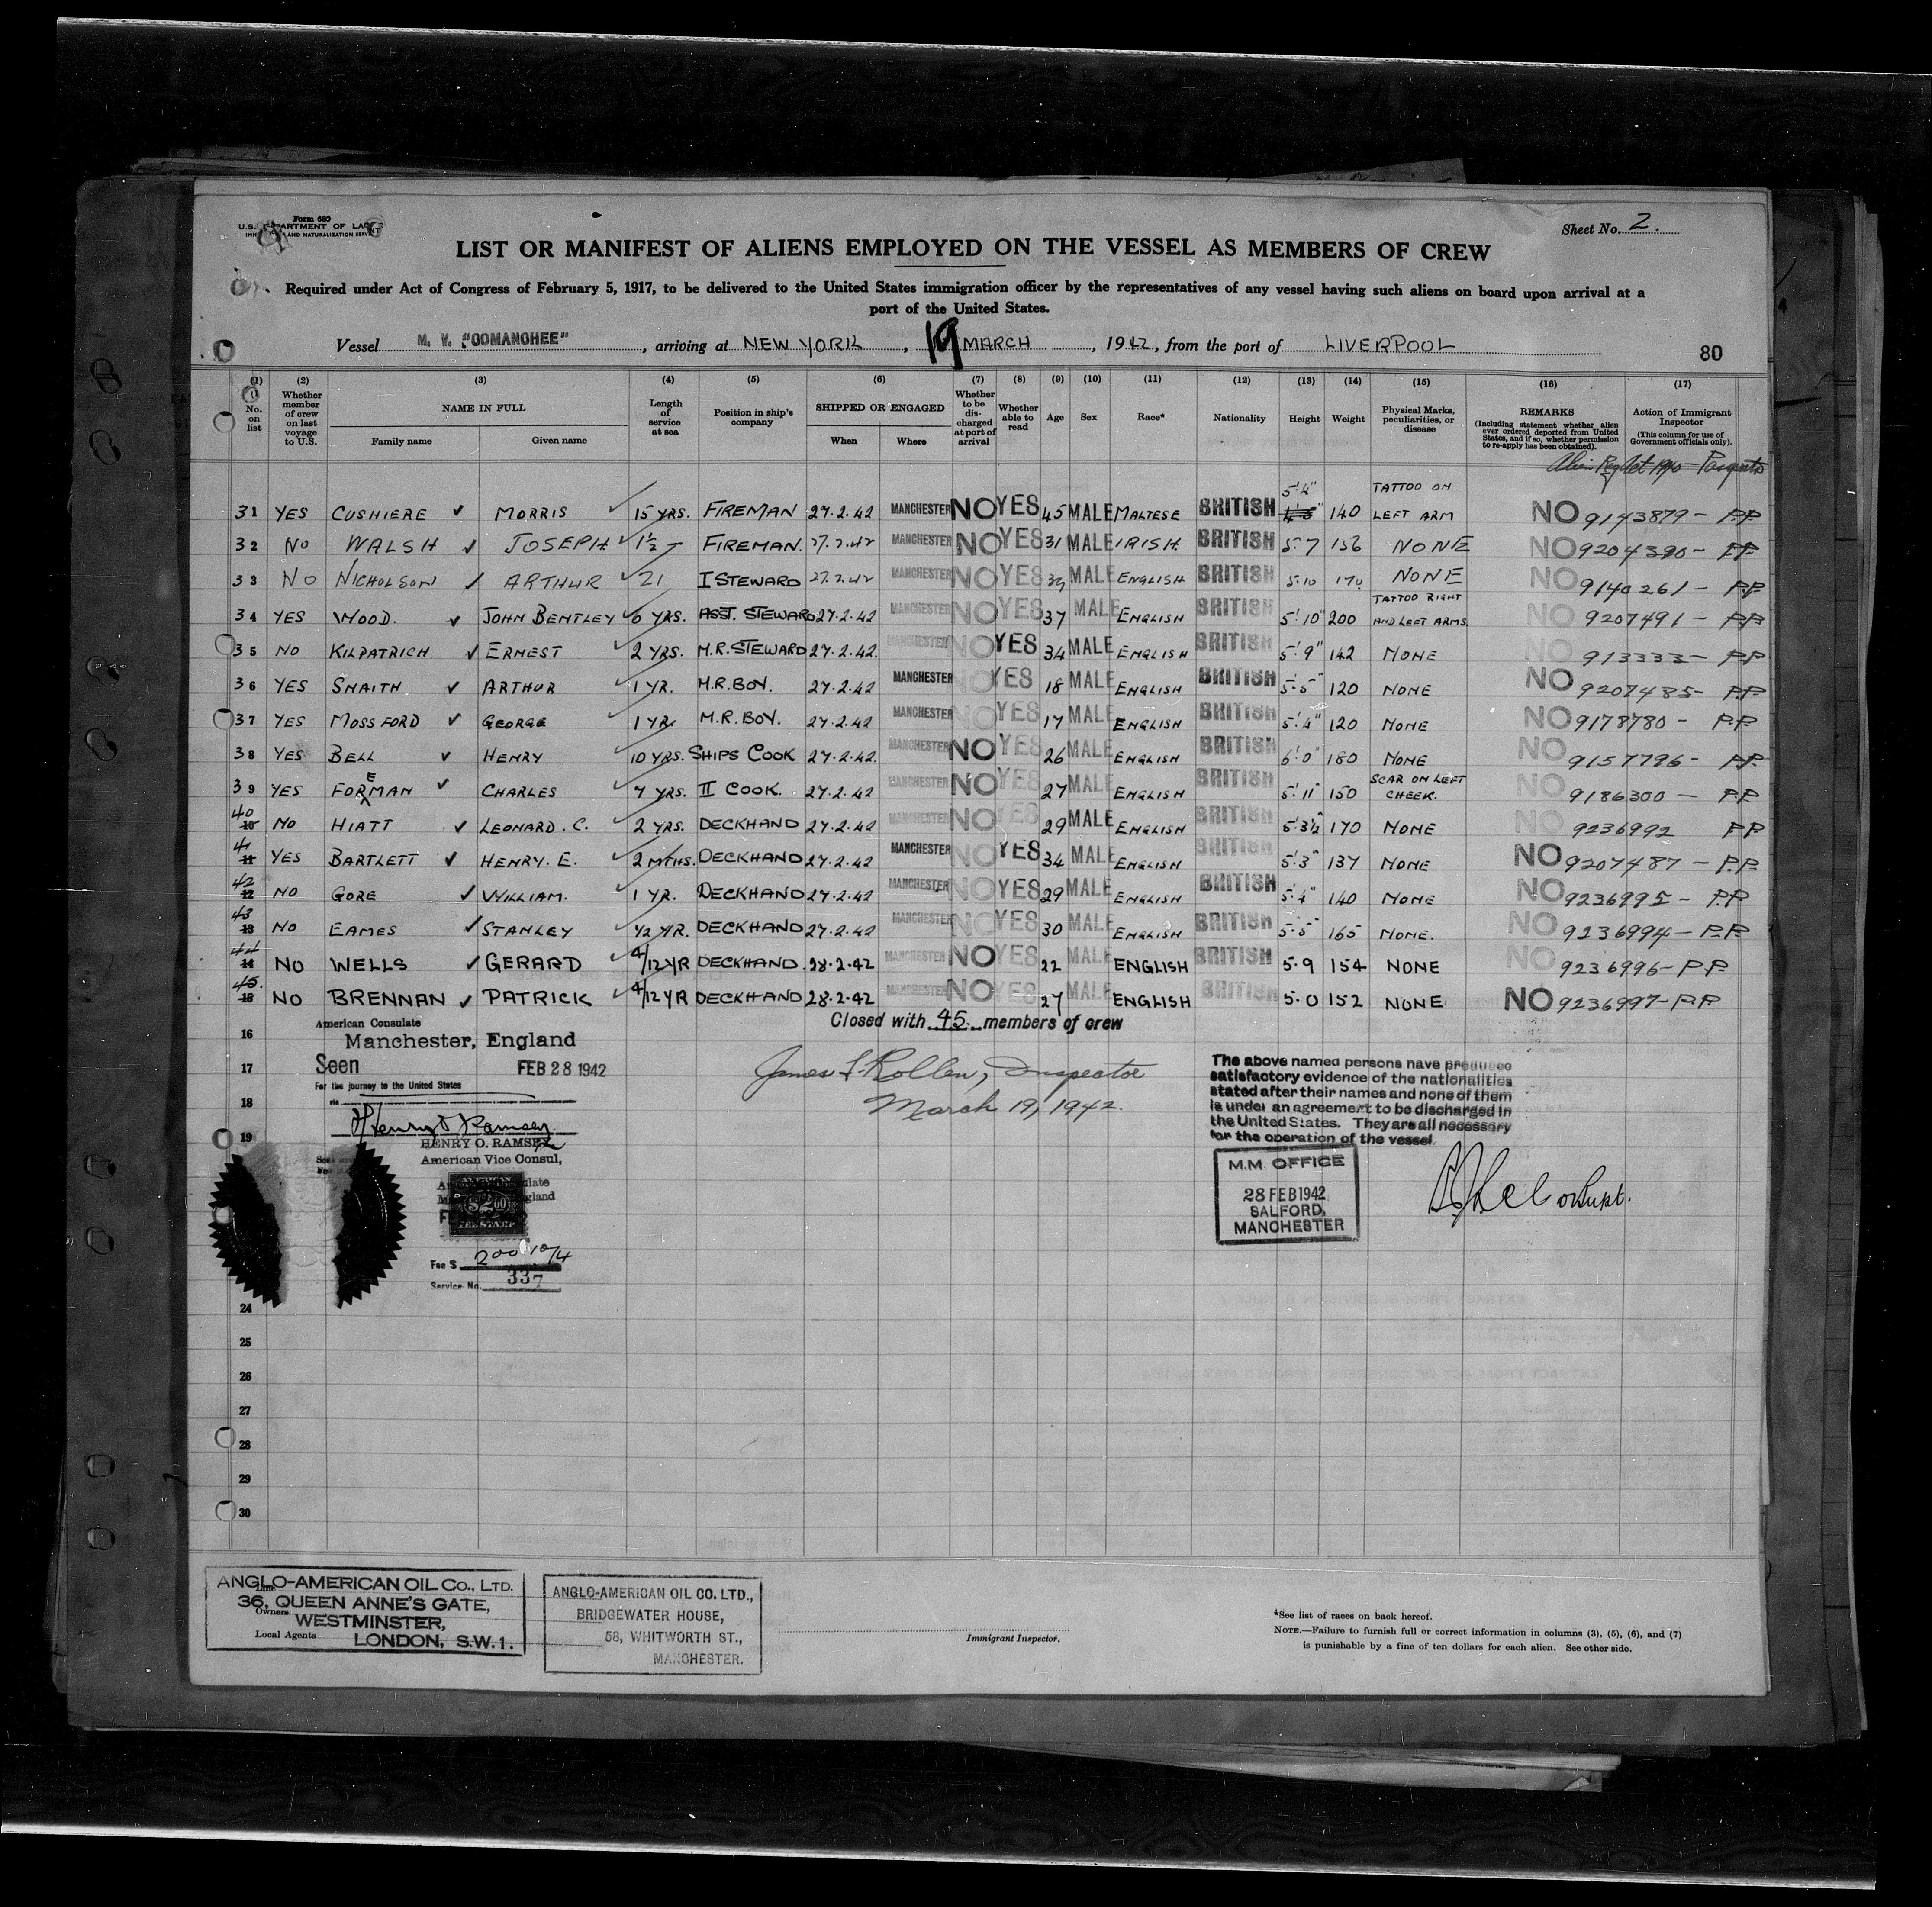 Form 680
U.S. DEPARTMENT OF LABOR
IMMIGRATION AND NATURALIZATION SERVICE
Sheet No. 2.
LIST OR MANIFEST OF ALIENS EMPLOYED ON THE VESSEL AS MEMBERS OF CREW
Required under Act of Congress of February 5, 1917, to be delivered to the United States immigration officer by the representatives of any vessel having such aliens on board upon arrival at a
port of the United States.
Vessel M. V. "OOMANGHEE", arriving at NEW YORK, 19 MARCH, 1942, from the port of LIVERPOOL
80
(1) (2) (3) (4) (5) (6) (7) (8) (9) (10) (11) (12) (13) (14) (15) (16) (17)
No. on list
Whether member of crew on last voyage to U.S.
NAME IN FULL
Family name
Given name
Length of service at sea
Position in ship's company
SHIPPED OR ENGAGED
When
Where
Whether to be discharged at port of arrival
Whether able to read
Age
Sex
Race*
Nationality
Height
Weight
Physical Marks, peculiarities, or disease
REMARKS
(Including statement whether alien ever ordered deported from United States, and if so, whether permission to re-apply has been obtained).
Action of Immigrant Inspector
(This column for use of Government officials only).
Alien Reg Act 1940
31 YES CUSHIERE MORRIS 15 YRS. FIREMAN 27.2.42 MANCHESTER NO YES 45 MALE MALTESE BRITISH 5'.4" 140 TATTOO ON LEFT ARM NO 9143879 - P.P.
32 NO WALSH JOSEPH 1½ - FIREMAN. 27.2.42 MANCHESTER NO YES 31 MALE IRISH. BRITISH 5.7 156 NONE NO 9204390 - P.P.
33 NO NICHOLSON ARTHUR 21 I STEWARD 27.2.42 MANCHESTER NO YES 39 MALE ENGLISH BRITISH 5.10 170 NONE NO 9140261 - P.P.
34 YES WOOD. JOHN BENTLEY 6 YRS. ASST. STEWARD 27.2.42 MANCHESTER NO YES 37 MALE ENGLISH BRITISH 5'.10" 200 TATTOO RIGHT AND LEFT ARMS. NO 9207491 - P.P.
35 NO KILPATRICH ERNEST 2 YRS. M.R. STEWARD 27.2.42. MANCHESTER NO YES 34 MALE ENGLISH BRITISH 5'.9" 142 NONE NO 913333 - P.P.
36 YES SMAITH ARTHUR 1 YR. M.R. BOY. 27.2.42 MANCHESTER NO YES 18 MALE ENGLISH BRITISH 5'.5" 120 NONE NO 9207485 - P.P.
37 YES MOSSFORD GEORGE 1 YR. M.R. BOY. 27.2.42 MANCHESTER NO YES 17 MALE ENGLISH BRITISH 5'.4" 120 NONE NO 9178780 - P.P.
38 YES BELL HENRY 10 YRS. SHIPS COOK 27.2.42. MANCHESTER NO YES 26 MALE ENGLISH BRITISH 6'.0" 180 NONE NO 9157796 - P.P.
39 YES FOREMAN CHARLES 7 YRS. II COOK. 27.2.42 MANCHESTER NO YES 27 MALE ENGLISH BRITISH 5'.11" 150 SCAR ON LEFT CHEEK. NO 9186300 - P.P.
40 NO HIATT LEONARD. C. 2 YRS. DECKHAND 27.2.42 MANCHESTER NO YES 29 MALE ENGLISH BRITISH 5'.3½" 170 NONE NO 9236992 P.P.
41 YES BARTLETT HENRY. E. 2 MTHS. DECKHAND 27.2.42 MANCHESTER NO YES 34 MALE ENGLISH BRITISH 5'.3" 137 NONE NO 9207487 - P.P.
42 NO GORE WILLIAM. 1 YR. DECKHAND 27.2.42 MANCHESTER NO YES 29 MALE ENGLISH BRITISH 5'.4" 140 NONE NO 9236995 - P.P.
43 NO EAMES STANLEY ½ YR. DECKHAND 27.2.42 MANCHESTER NO YES 30 MALE ENGLISH BRITISH 5'.5" 165 NONE. NO 9236994 - P.P.
44 NO WELLS GERARD 4/12 YR DECKHAND. 28.2.42 MANCHESTER NO YES 22 MALE ENGLISH BRITISH 5.9 154 NONE NO 9236996 - P.P.
45. NO BRENNAN PATRICK 4/12 YR DECKHAND 28.2.42 MANCHESTER NO YES 27 MALE ENGLISH BRITISH 5.0 152 NONE NO 9236997 - P.P.
Closed with 45 members of crew
16
17
18
19
American Consulate
Manchester, England
Seen FEB 28 1942
For the journey to the United States
via
Henry O Ramsey
HENRY O. RAMSEY
American Vice Consul,
AMERICAN
$2.00
FEE STAMP
Fee $ 2 00 10/4
Service No. 337
James Inspector
March 19, 1942.
The above named persons have produced
satisfactory evidence of the nationalities
stated after their names and none of them
is under an agreement to be discharged in
the United States. They are all necessary
for the operation of the vessel.
M.M. OFFICE
28 FEB 1942
SALFORD,
MANCHESTER
24
25
26
27
28
29
30
ANGLO-AMERICAN OIL CO., LTD.
36, QUEEN ANNE'S GATE,
WESTMINSTER,
LONDON, S.W.1.
Line
Owners
Local Agents
ANGLO-AMERICAN OIL CO. LTD.,
BRIDGEWATER HOUSE,
58, WHITWORTH ST.,
MANCHESTER.
Immigrant Inspector.
*See list of races on back hereof.
NOTE.—Failure to furnish full or correct information in columns (3), (5), (6), and (7)
is punishable by a fine of ten dollars for each alien. See other side.